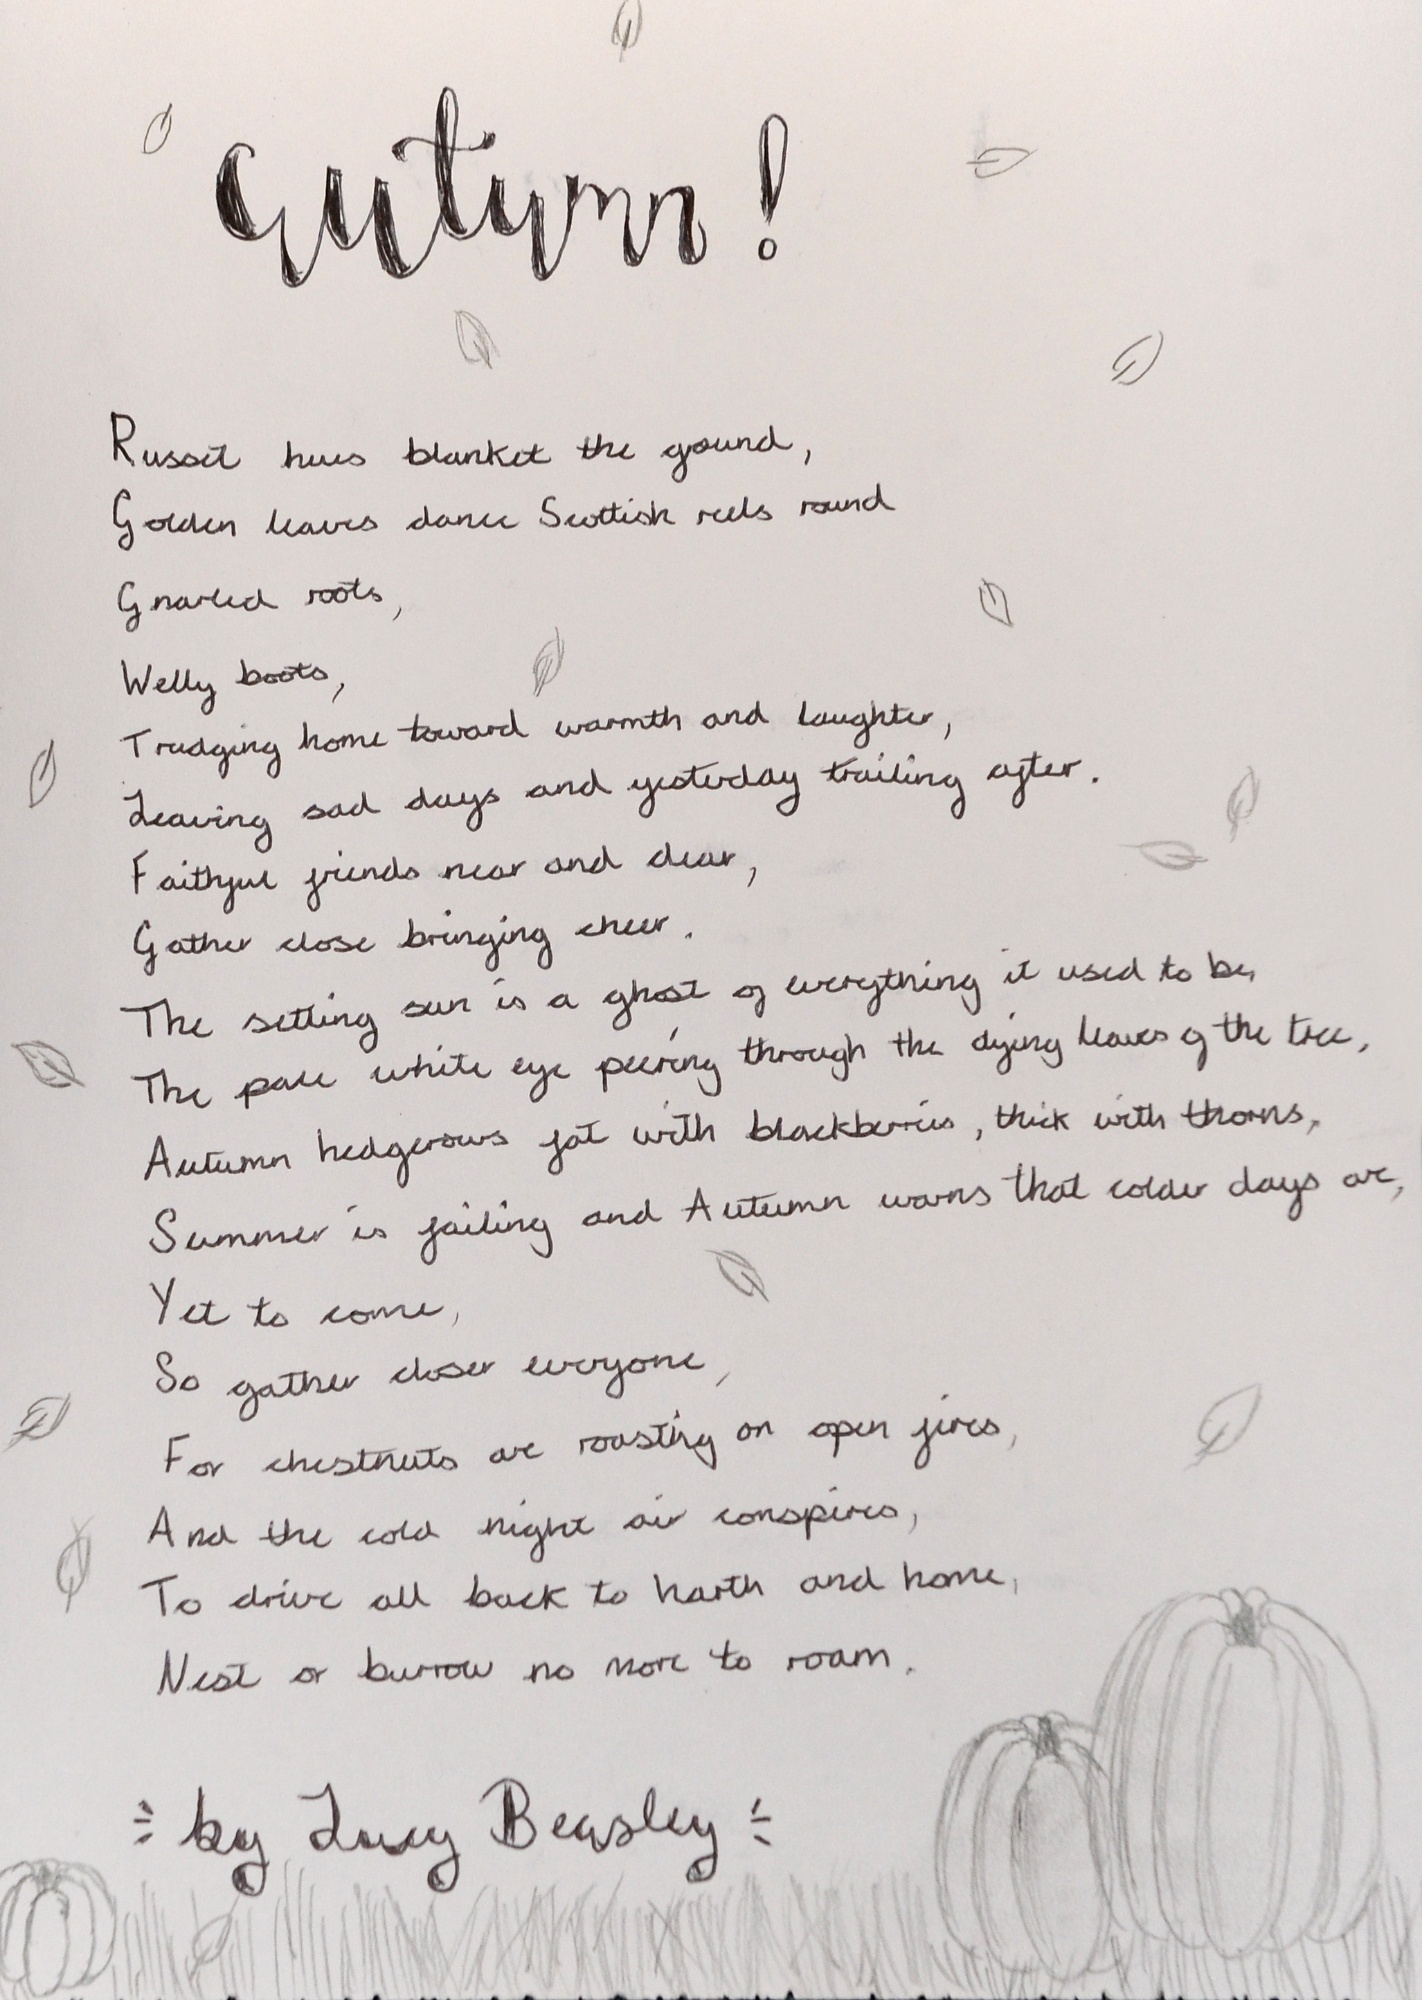 Autumn!
Russet hues blanket the gound,
Golden leaves dance Scottish reels round
Gnarled roots,
Welly boots,
Trudging home toward warmth and laughter,
Leaving sad days and yesterday trailing after.
Faithful friends near and dear,
Gather close bringing cheer.
The setting sun is a ghost of everything it used to be,
The pale white eye peering through the dying leaves of the tree,
Autumn hedgerows fat with blackberries, thick with thorns,
Summer is failing and Autumn warns that colder days are,
Yet to come,
So gather closer everyone,
For chestnuts are roasting on open fires,
And the cold night air conspires,
To drive all back to harth and home,
Nest or burrow no more to roam.
by Lucy Beasley